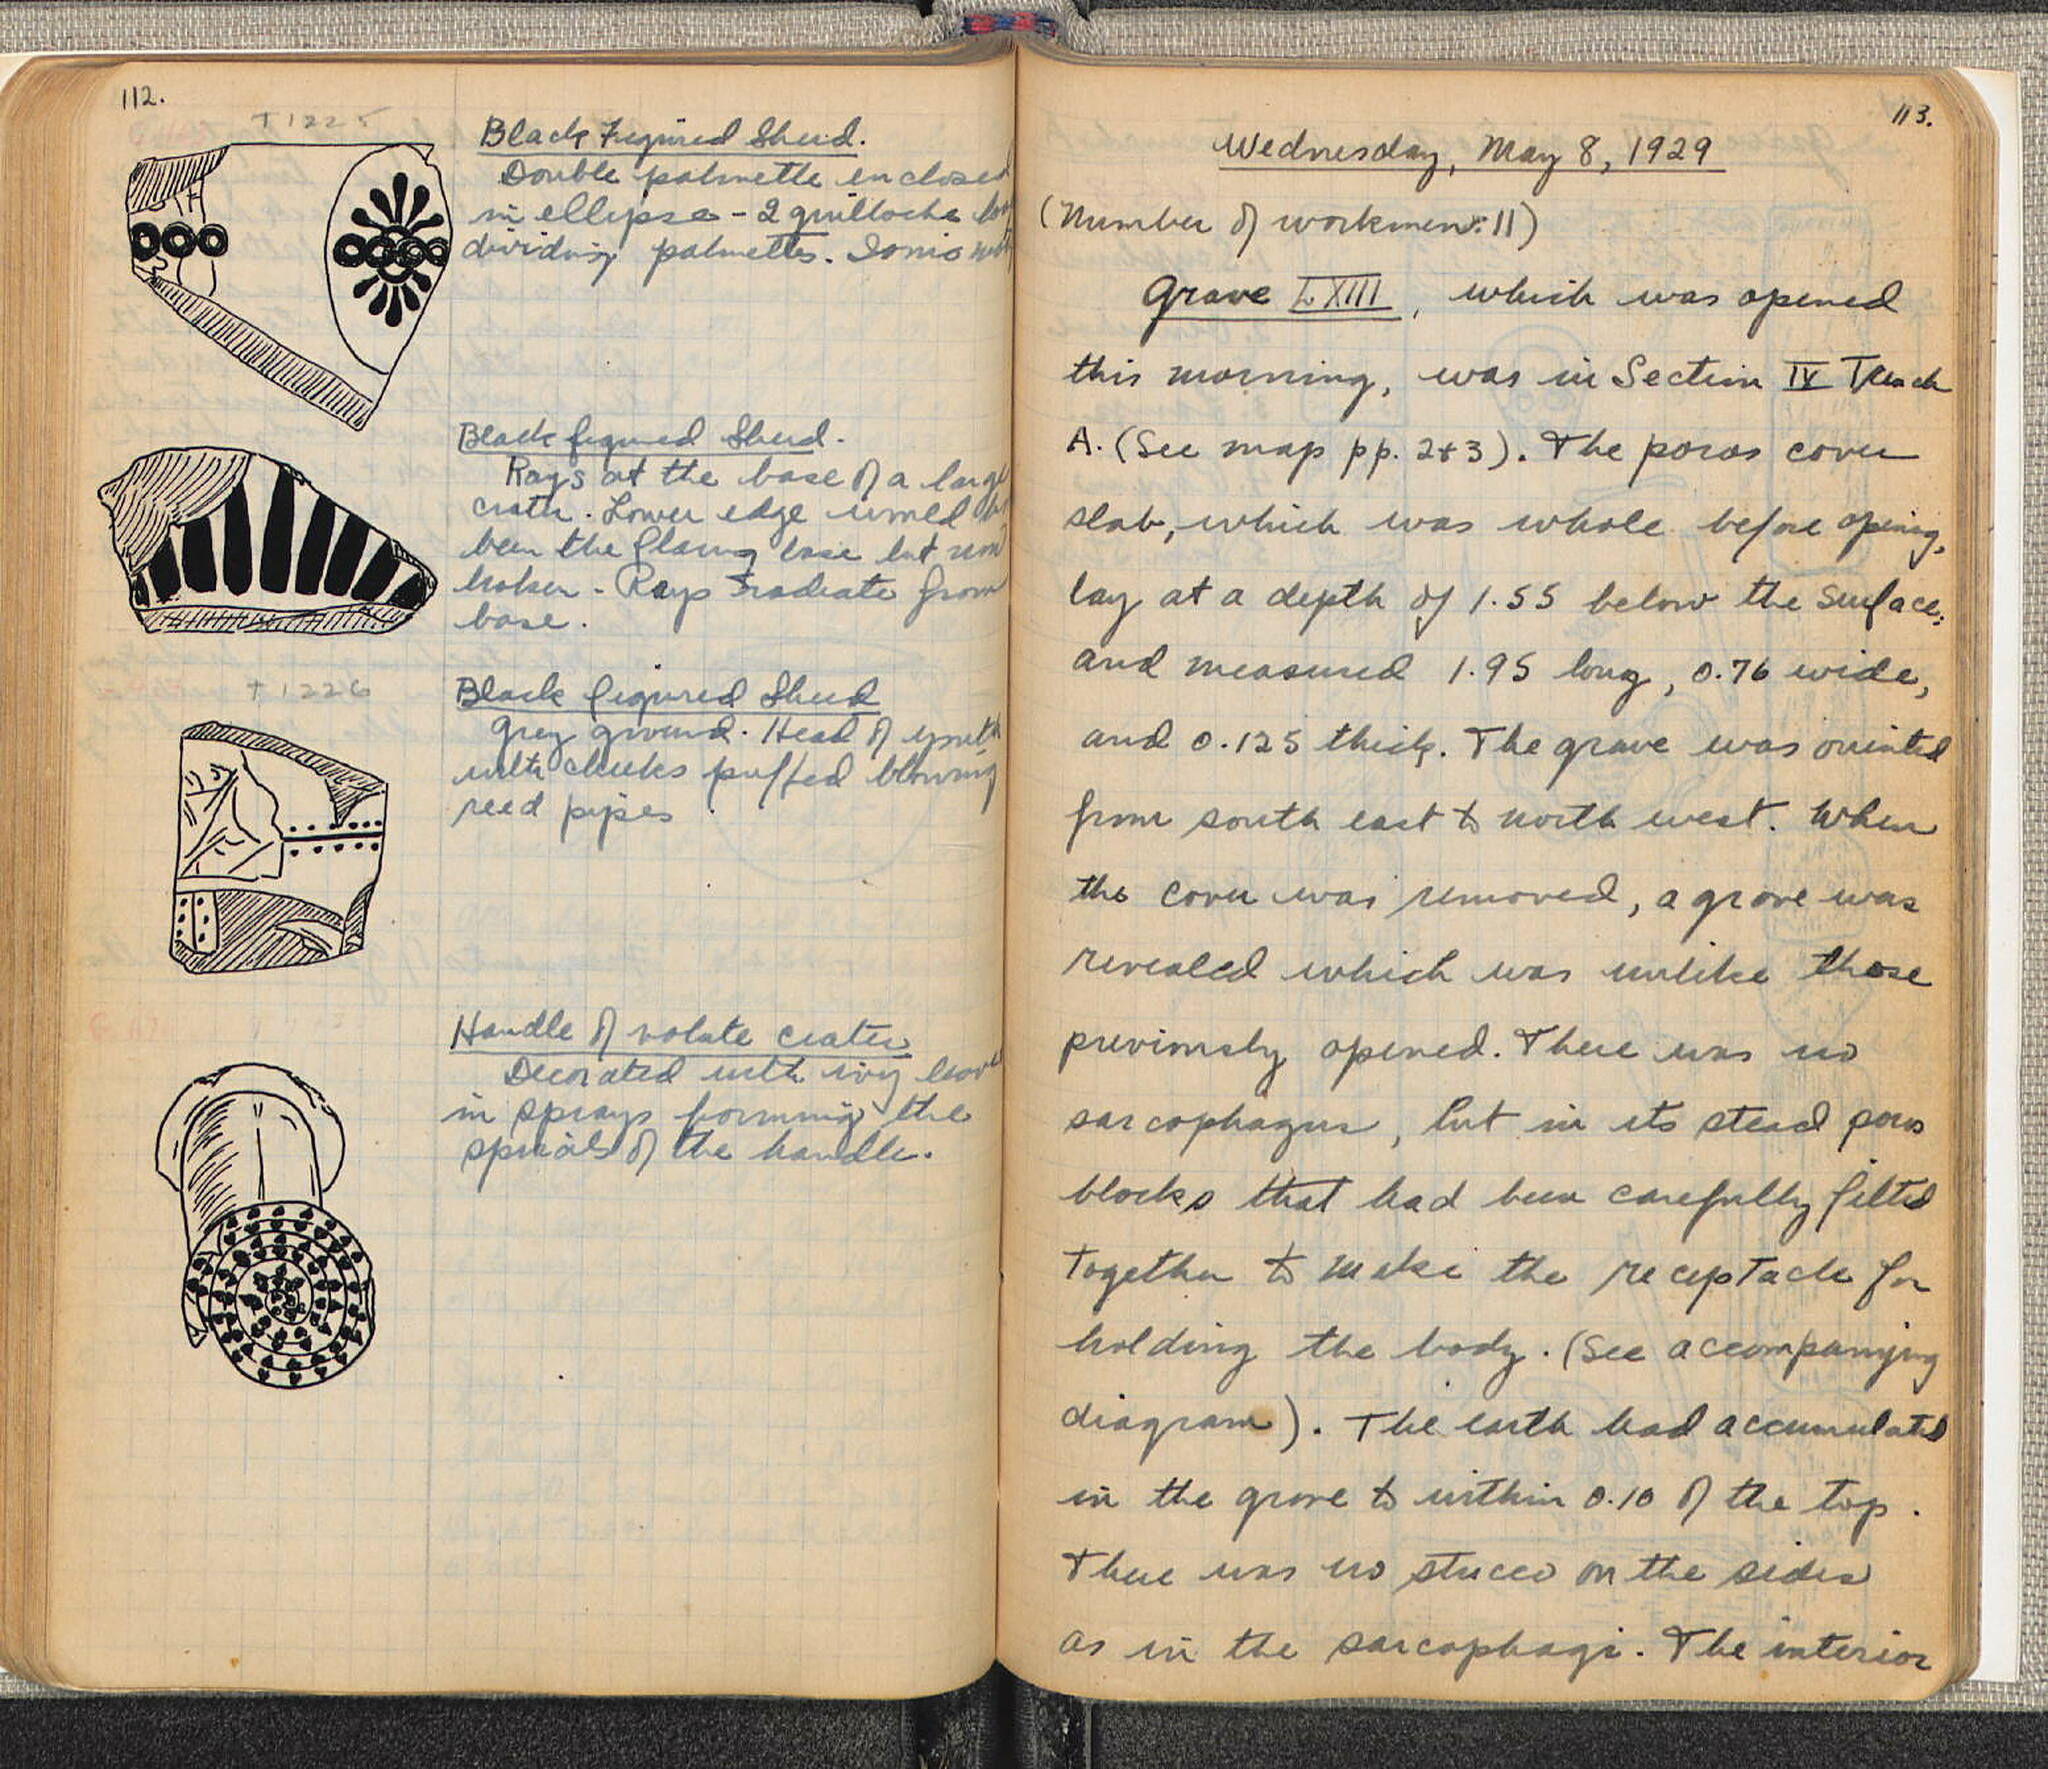 112.
T 1225
Black Figured Sherd.
Double palmette enclosed
in ellipse - 2 guilloche
dividing palmettes. Ionic
Black figured Sherd.
Rays at the base of a large
crater. Lower edge would
been the flaring base but now
broken - Rays radiate from
base.
T 1226
Black figured Sherd
Grey ground. Head of youth
with cheeks puffed blowing
reed pipes
Handle of volute crater
Decorated with ivy leaves
in sprays forming the
spirals of the handle.
113.
Wednesday, May 8, 1929
(Number of workmen: 11)
Grave LXIII, which was opened
this morning, was in Section IV Trench
A. (See map pp. 2+3). The poros cover
slab, which was whole before opening,
lay at a depth of 1.55 below the surface;
and measured 1.95 long, 0.76 wide,
and 0.125 thick. The grave was oriented
from south east to north west. When
the cover was removed, a grave was
revealed which was unlike those
previously opened. There was no
sarcophagus, but in its stead poros
blocks that had been carefully fitted
together to make the receptacle for
holding the body. (See accompanying
diagram). The earth had accumulated
in the grave to within 0.10 of the top.
There was no stucco on the sides
as in the sarcophagi. The interior